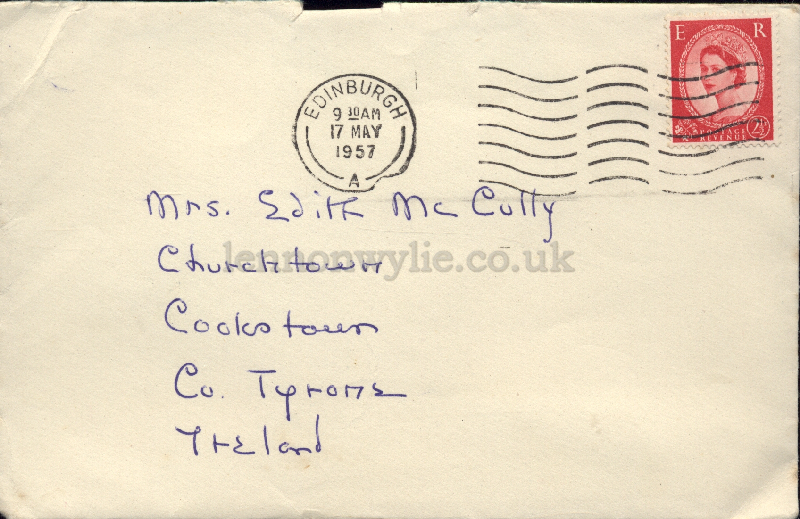 E R
POSTAGE
REVENUE
2½D
EDINBURGH
9 30 AM
17 MAY
1957
A
Mrs. Edith Mc Cully
Churchtown
lennonwylie.co.uk
Cookstown
Co. Tyrone
Ireland